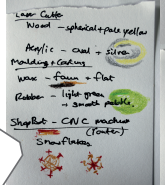 Laser Cutte
Wood - spherical + pale yellow
Acrylic - oval + silver
Moulding + Casting
Wax - fawn + flat
Rubber - light green
+ smooth pebble.
ShopBot - CNC machine
(router)
Snowflakes